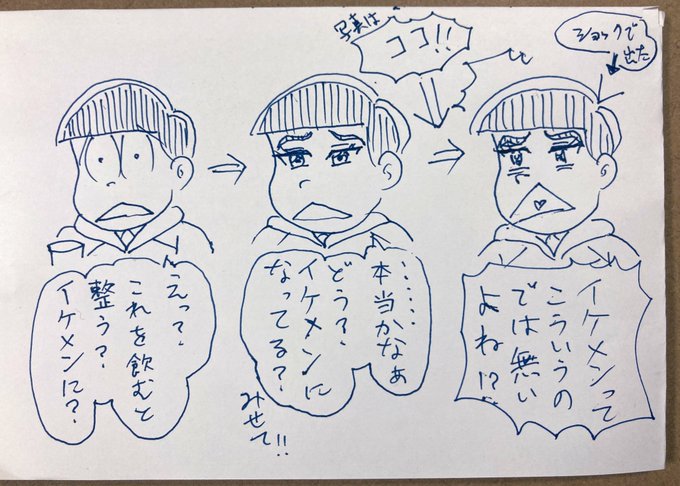 えっ？
これを飲むと
整う？
イケメンに？
……
本当かなぁ
どう？
イケメンに
なってる？
みせて!!
写真は
ココ!!
ショックで
出た
イケメンって
こういうの
では無い
よね!?